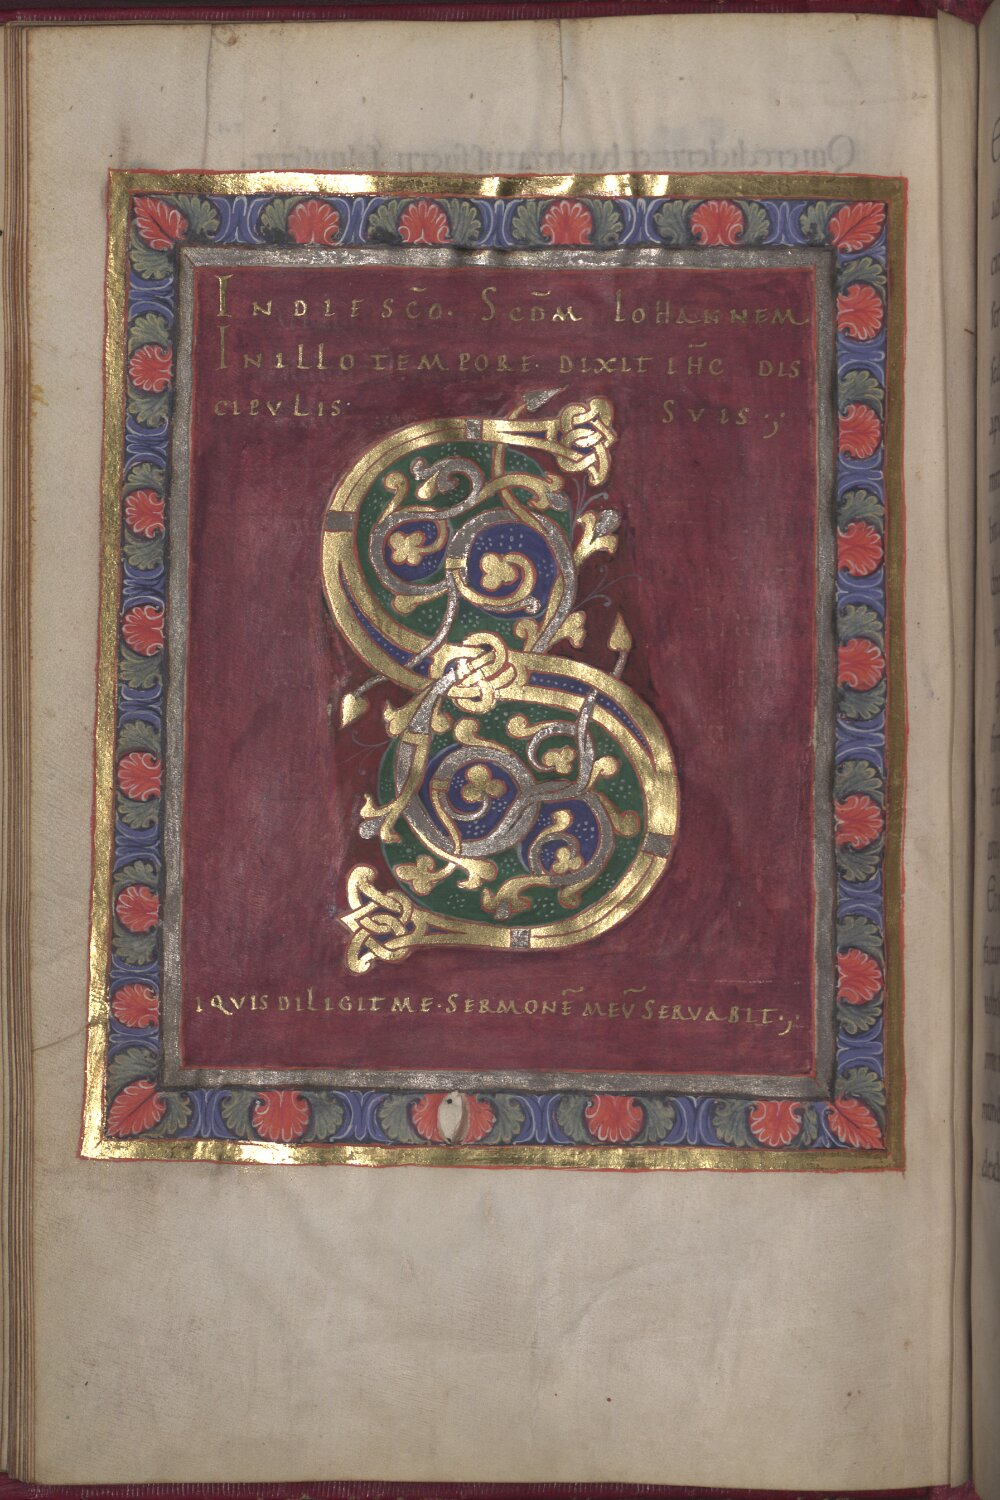 IN DIE SCŌ. SCDM IOHANNEM
IN ILLO TEMPORE. DIXIT IH̄C DIS
CIPVLIS SVIS.;
S
IQVIS DILIGIT ME. SERMONĒ MEV̄ SERVABIT.;